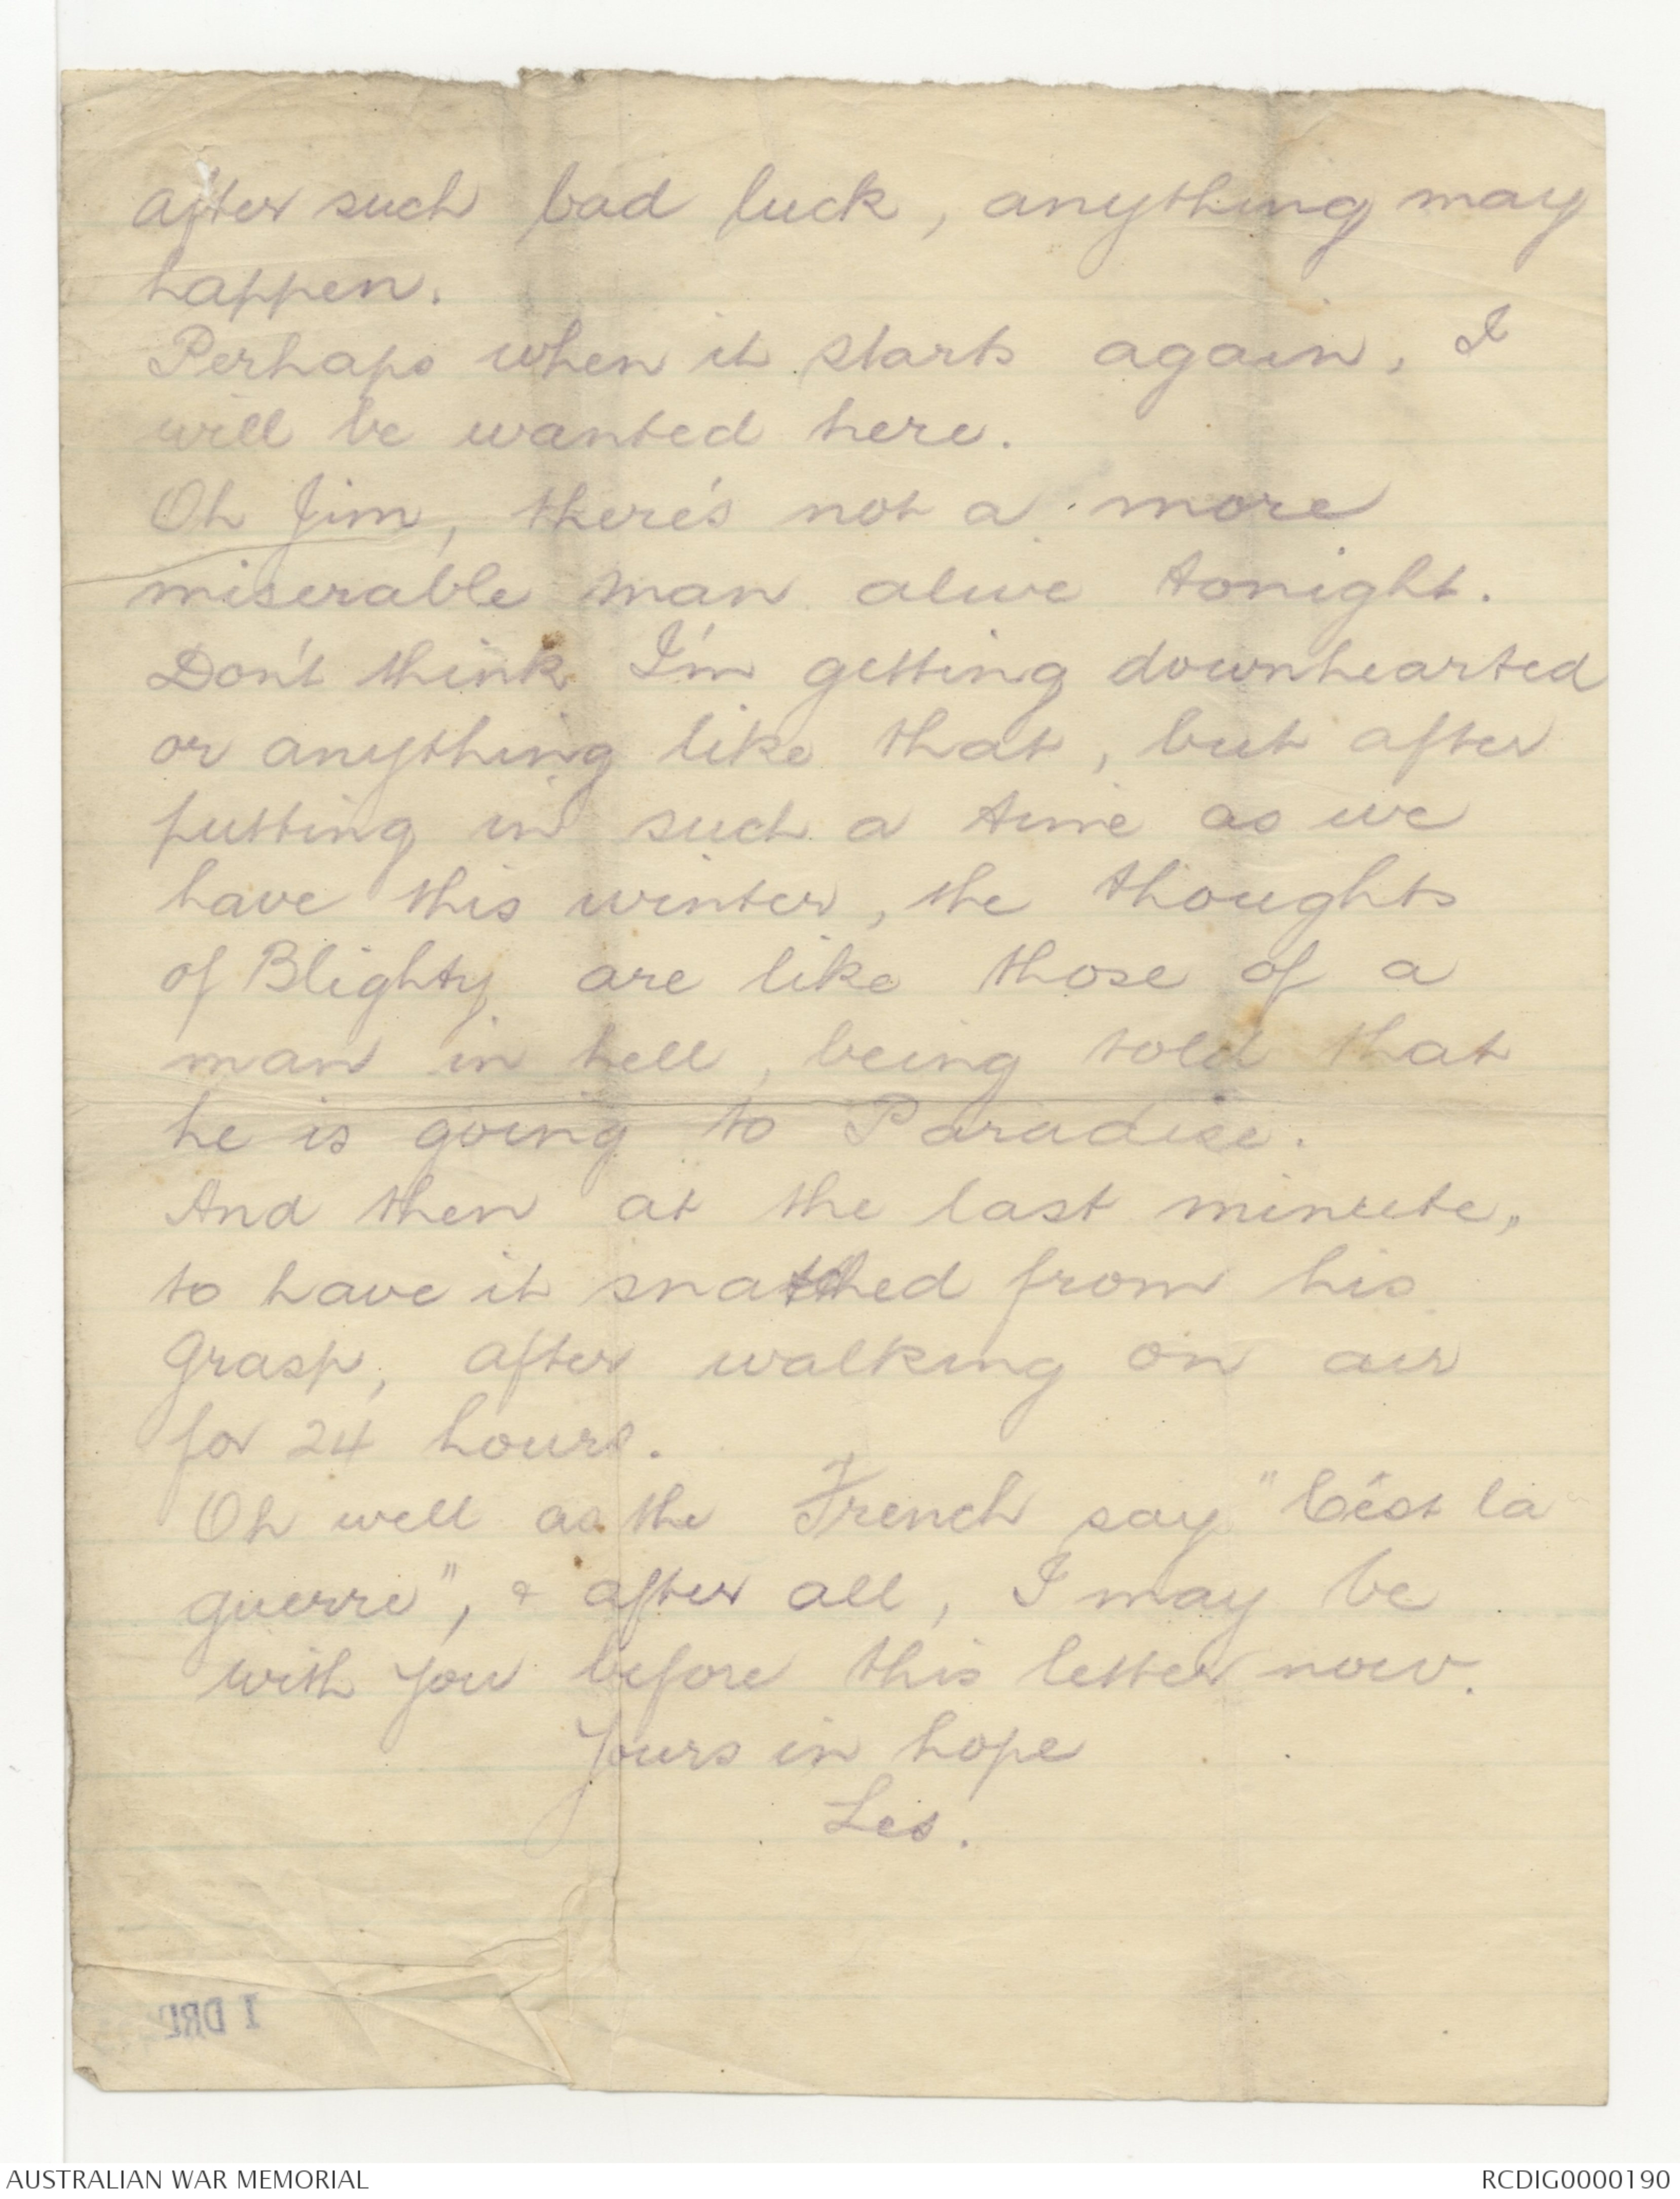 after such bad luck, anything may
happen.
Perhaps when it starts again, I
will be wanted here.
Oh Jim, there's not a more
miserable man alive tonight.
Don't think I'm getting downhearted
or anything like that, but after
putting in such a time as we
have this winter, the thoughts
of Blighty are like those of a
man in hell, being told that
he is going to Paradise.
And then at the last minute,
to have it snatched from his
grasp, after walking on air
for 24 hours.
Oh well as the French say "C'est la
guerre", & after all, I may be
with you before this letter now.
Yours in hope
Les.
1 DRL
AUSTRALIAN WAR MEMORIAL
RCDIG0000190